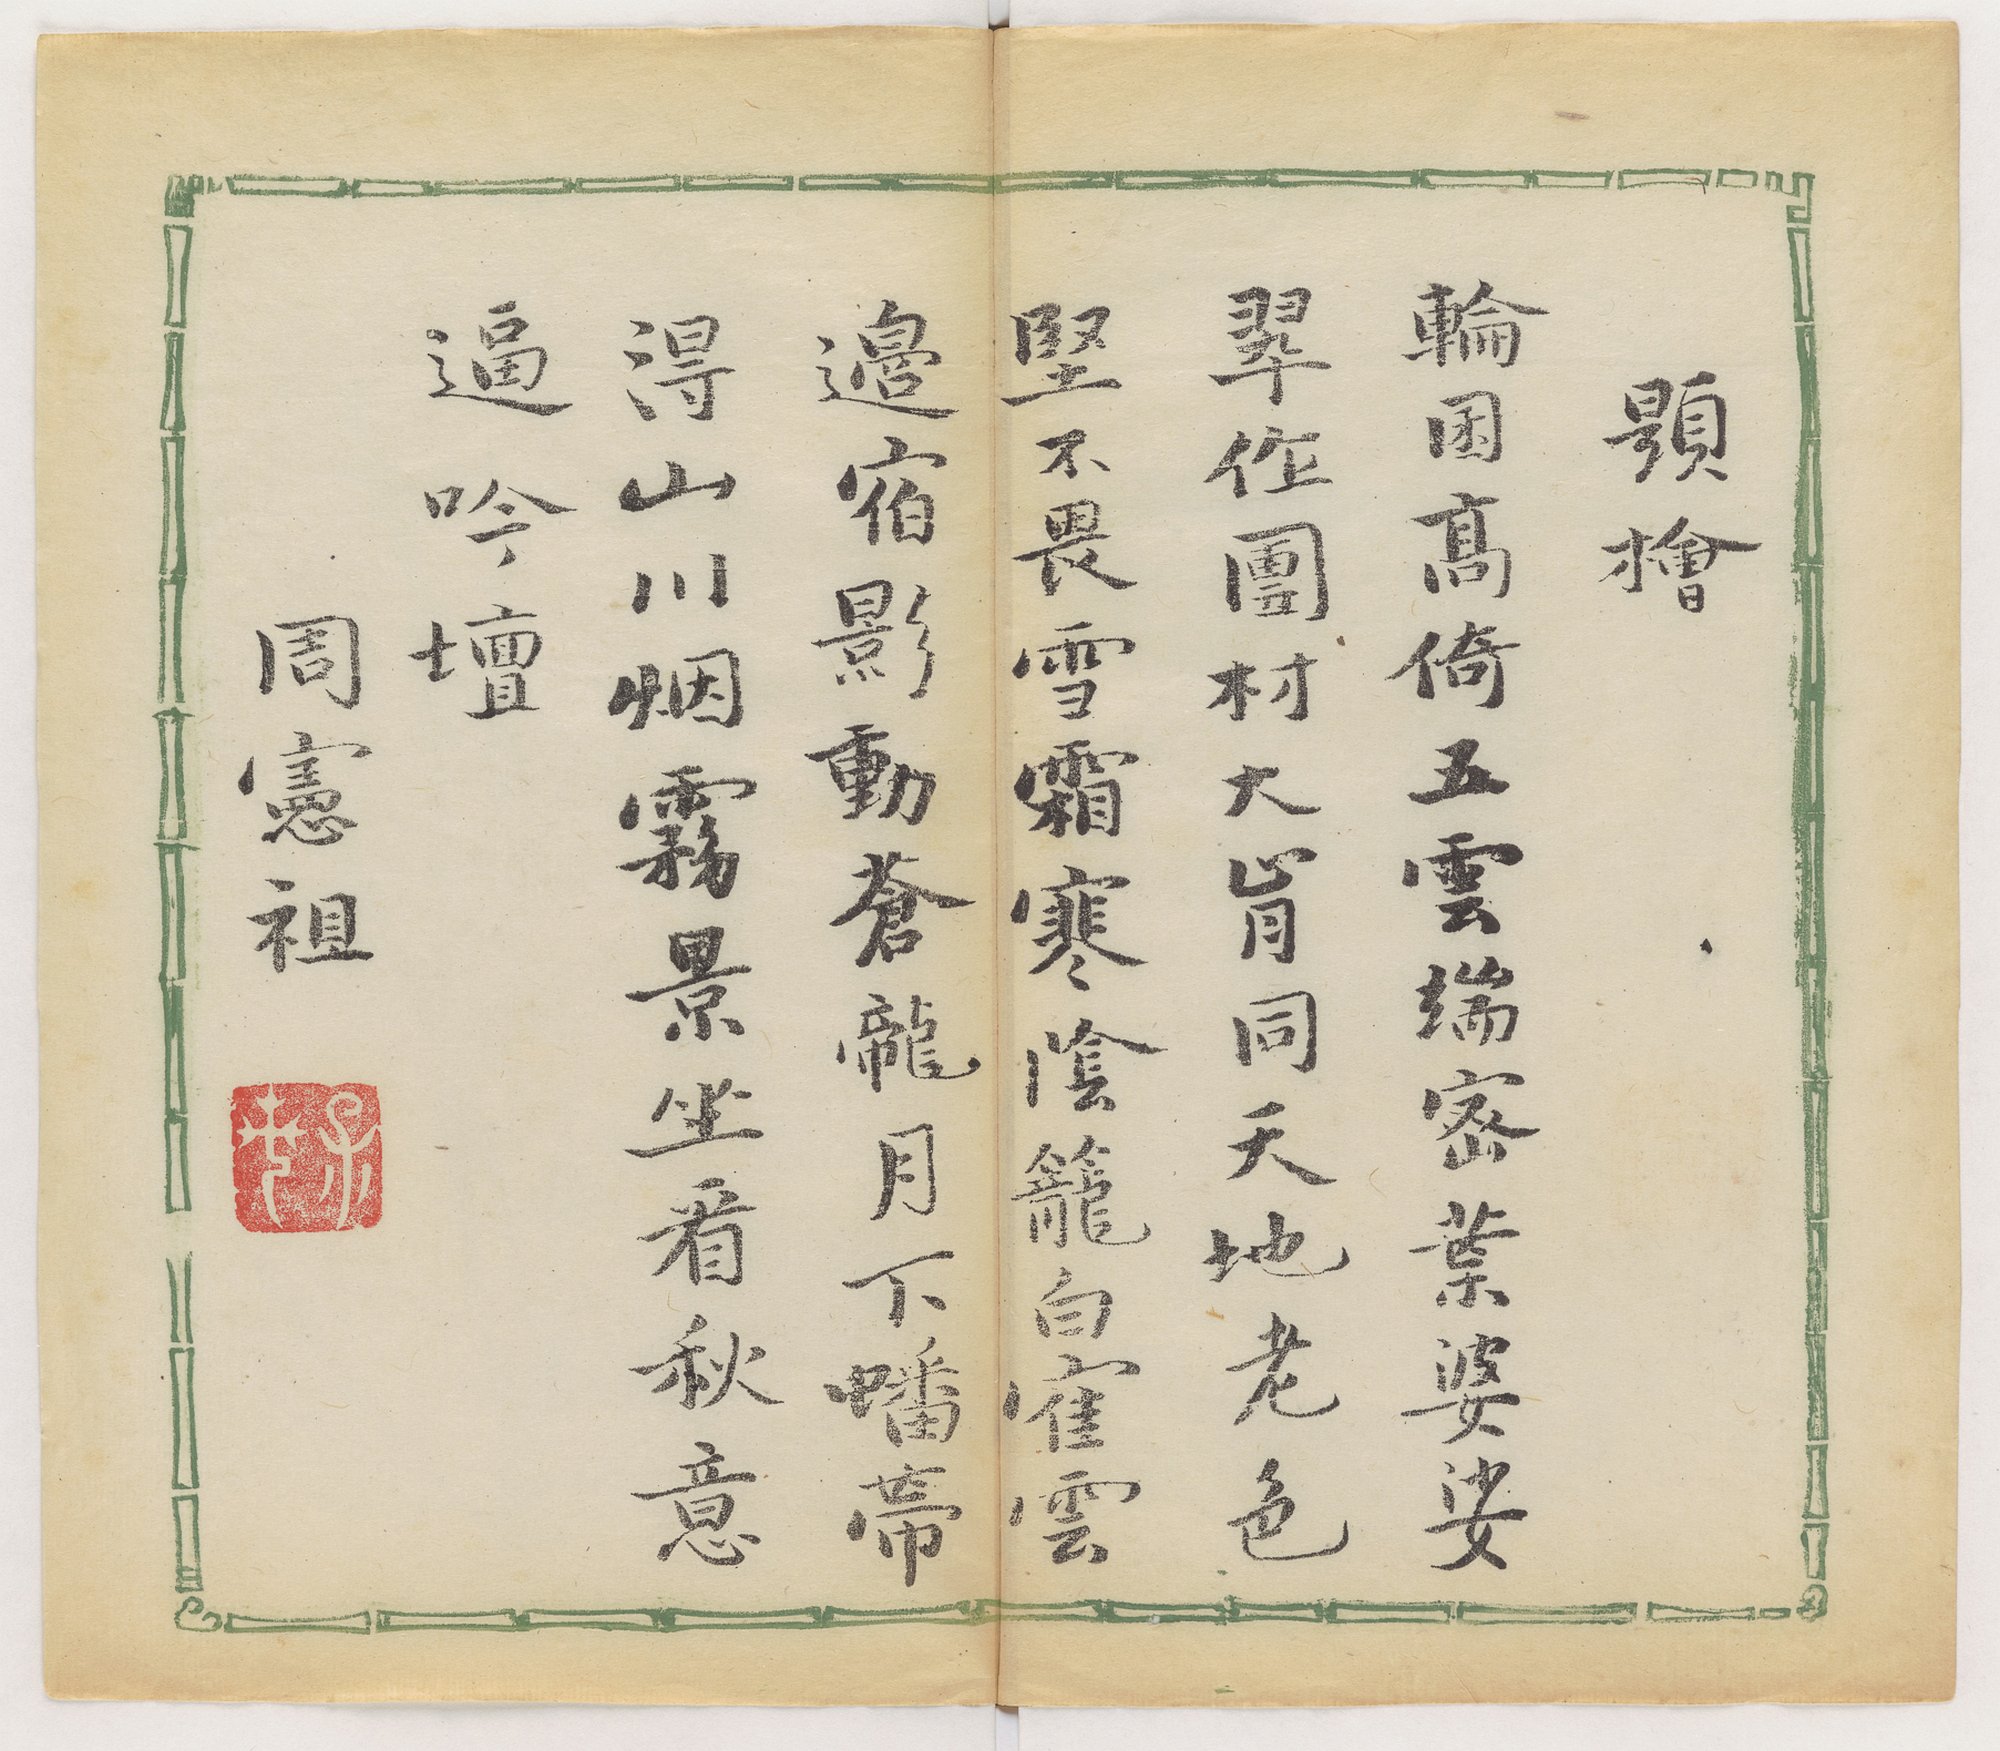 題檜
輪囷髙倚五雲端宻葉婆娑
翠作團材大肯同天地老色
堅不畏雪霜寒陰籠白隺雲
邉宿影動蒼龍月下蟠蒂
得山川烟霧景坐看秋意
逼吟壇
周憲祖